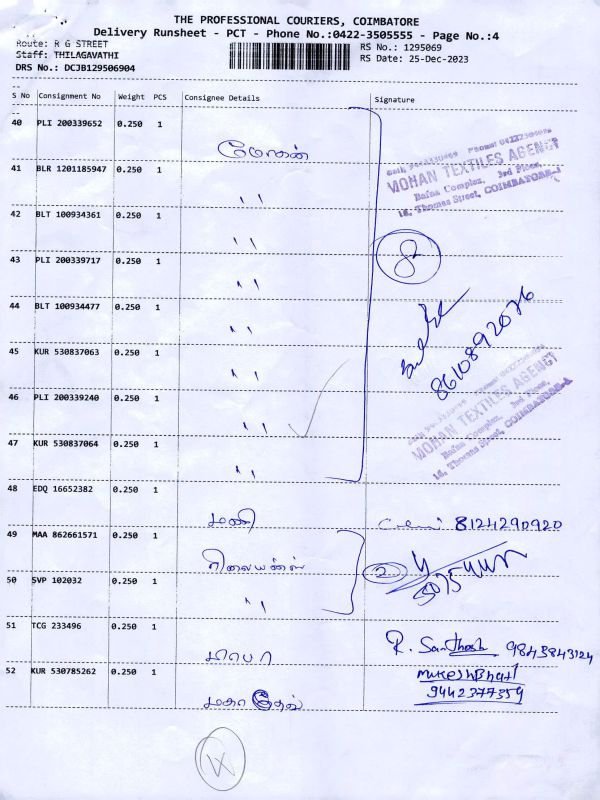 THE PROFESSIONAL COURIERS, COIMBATORE
Delivery Runsheet - PCT - Phone No.:0422-3505555 - Page No.:4
Route: R G STREET
RS No.: 1295069
Staff: THILAGAVATHI
RS Date: 25-Dec-2023
DRS No.: DCJB129506904
S No Consignment No Weight PCS Consignee Details Signature
40 PLI 200339652 0.250 1 மோகன்
MOHAN TEXTILES AGENCY
Bafna Complex, 3rd Floor,
16, Thomas Street, COIMBATORE-1
41 BLR 1201185947 0.250 1 ''
42 BLT 100934361 0.250 1 ''
8
43 PLI 200339717 0.250 1 ''
44 BLT 100934477 0.250 1 ''
8610892076
45 KUR 530837063 0.250 1 ''
46 PLI 200339240 0.250 1 ''
MOHAN TEXTILES AGENCY
Bafna Complex, 3rd Floor,
16, Thomas Street, COIMBATORE-1
47 KUR 530837064 0.250 1 ''
48 EDQ 16652382 0.250 1 மணி 8124290920
49 MAA 862661571 0.250 1 ரிலையன்ஸ்
2
50 SVP 102032 0.250 1 ''
51 TCG 233496 0.250 1 R. Santhosh 9843843124
52 KUR 530785262 0.250 1 மகாதேவ்
MukeshBhati
9442377359